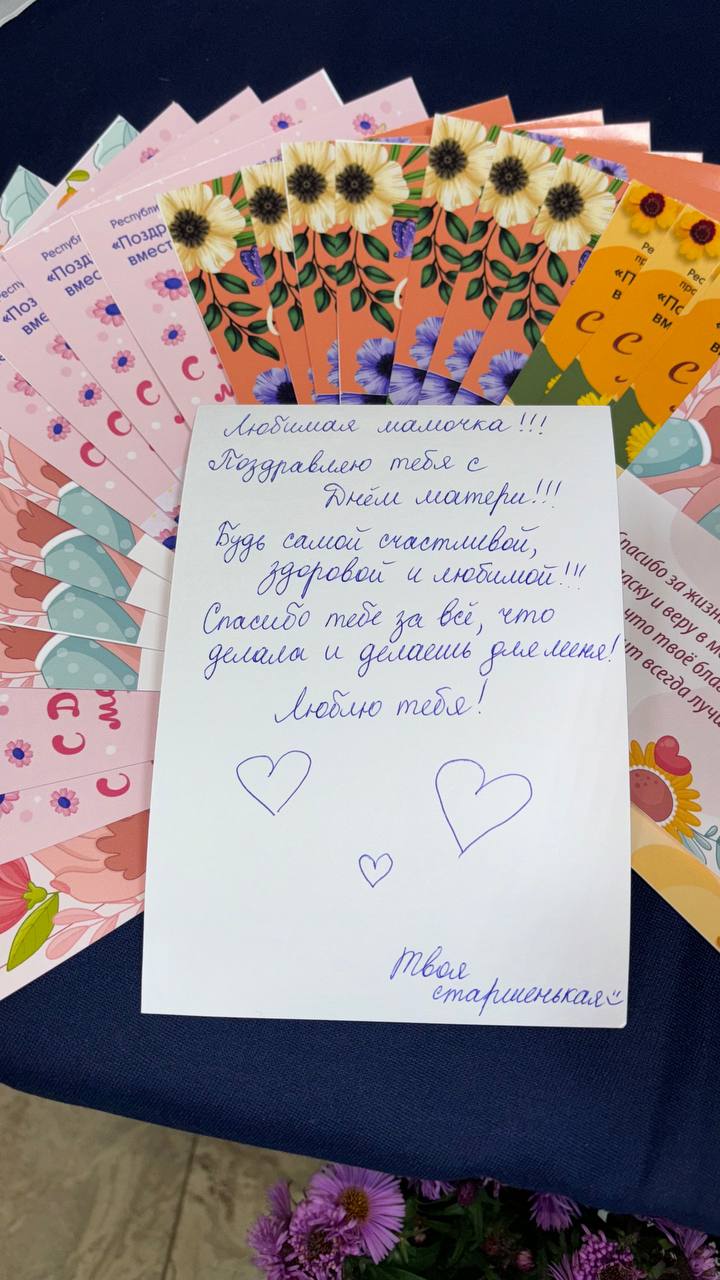 Республи
«Поздр
вмест
Любимая мамочка!!!
Поздравляю тебя с
Днём матери!!!
Будь самой счастливой,
здоровой и любимой!!!
Спасибо тебе за всё, что
делала и делаешь для меня!
Люблю тебя!
Твоя
старшенькая
Республи
«Позд
вмес
Респуб
«Позд
вме
«Поз
вме
С
С
С
С
С
С
Ре
про
«П
в
С
«По
вм
С
Рес
про
«По
вм
С
С Д
м
С
пасибо за жизн
аску и веру в м
что твоё бла
ит всегда луча